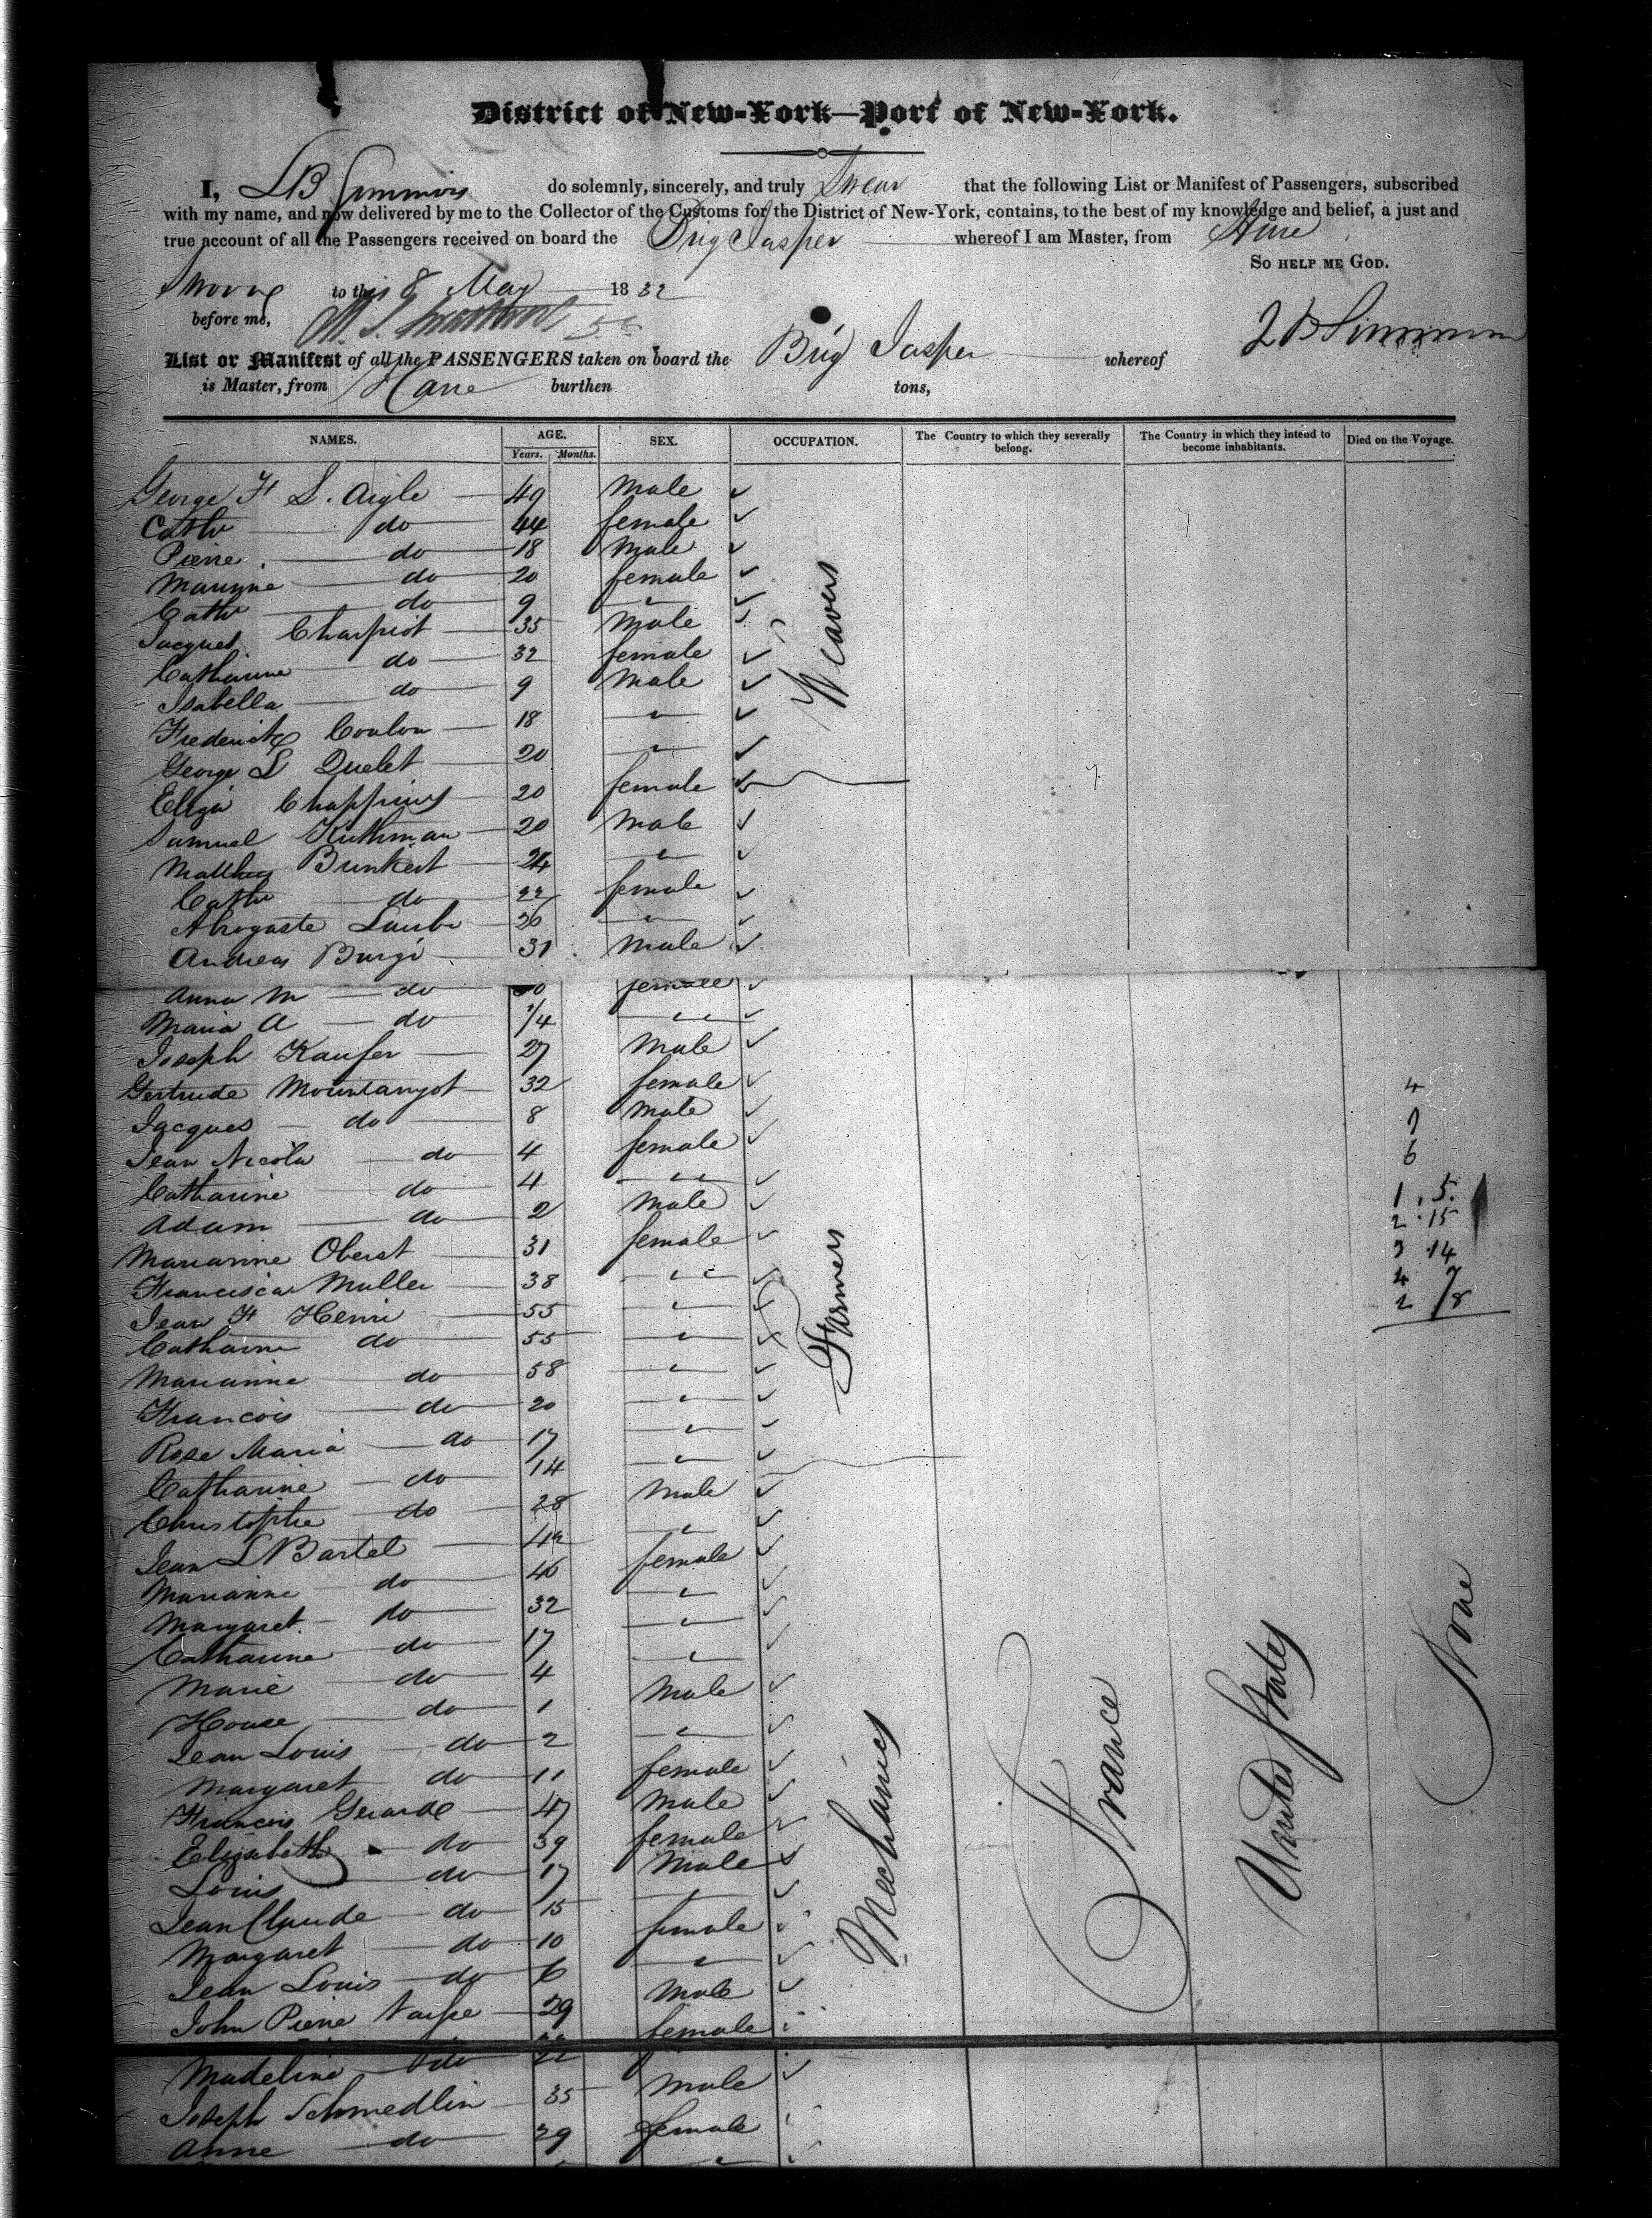 District of New-York—Port of New-York.
I, LB Simmons do solemnly, sincerely, and truly Swear that the following List or Manifest of Passengers, subscribed
with my name, and now delivered by me to the Collector of the Customs for the District of New-York, contains, to the best of my knowledge and belief, a just and
true account of all the Passengers received on board the Brig Jasper whereof I am Master, from Havre
So help me God.
Sworn to this 8 May 1832
before me,
LB Simmons
List or Manifest of all the PASSENGERS taken on board the Brig Jasper whereof
is Master, from Havre burthen tons,
NAMES. AGE. SEX. OCCUPATION. The Country to which they severally belong. The Country in which they intend to become inhabitants. Died on the Voyage.
Years. Months.
George Ft L. Aigle 49 Male
Cathe do 44 female
Pierre do 18 Male
do 20 female
Cathe do 9 "
Jacques Charpiot 35 Male
Catharine do 32 female
Isabella do 9 Male
Frederick Coulon 18 "
George L Quelet 20 "
Eliza Chappius 20 female
Weavers
Samuel Kuthman 20 Male
Matthew Bunkert 24 "
Cathe do 22 female
Laube 26 "
Andreas Burgi 31 Male
Anna M do 30 female
Maria A do 1/4 "
Joseph Kaufer 27 Male
Gertrude 32 female 4
Jacques do 8 Male 7
Jean Nicola do 4 female 6
Catharine do 4 " 1.5.
Adam do 2 Male 2.15
Marianne Oberst 31 female 3 14
Francisca Muller 38 " 4 7
Jean Ft Henri 55 " 2 /8
Catharine do 55 "
Marianne do 58 "
Francois do 20 "
Rose Maria do 17 "
Catharine do 14 "
Farmers
Christophe do 28 Male
Jean L Bartel 42 "
Marianne do 46 female
Margaret do 32 "
Catharine do 17 "
Marie do 4 "
House do 1 Male
Jean Louis do 2 "
Margaret do 11 female
Francois Gerarde 47 Male
Elizabeth do 39 female
Louis do 17 Male
Jean Claude do 15 "
Margaret do 10 female
Jean Louis do 6 "
John Pierre 29 Male
Madeline do 22 female
Joseph Schmedlin 35 Male
Anne do 29 female
Mechanics
France
United States
None